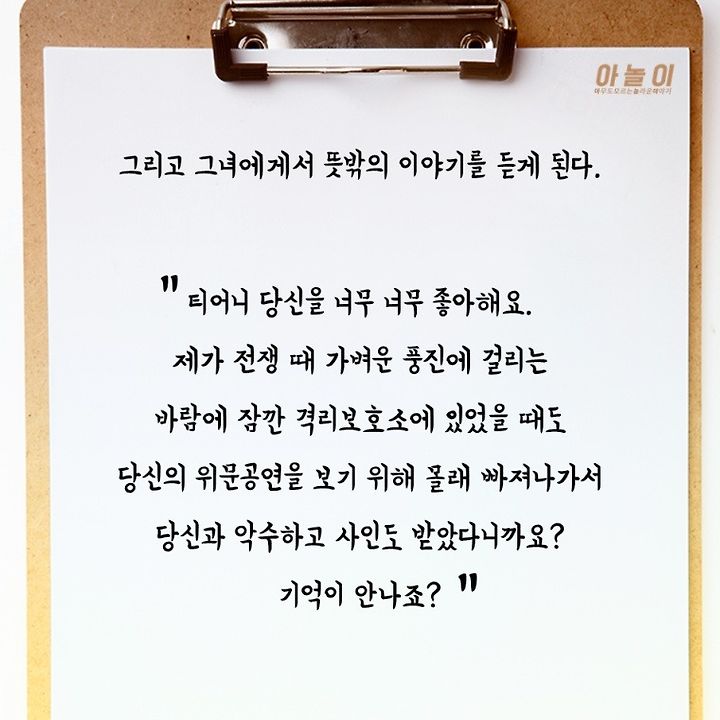 아놀이
아무도모르는놀라운이야기
그리고 그녀에게서 뜻밖의 이야기를 듣게 된다.
" 티어니 당신을 너무 너무 좋아해요.
제가 전쟁 때 가벼운 풍진에 걸리는
바람에 잠깐 격리보호소에 있었을 때도
당신의 위문공연을 보기 위해 몰래 빠져나가서
당신과 악수하고 사인도 받았다니까요?
기억이 안나죠? "